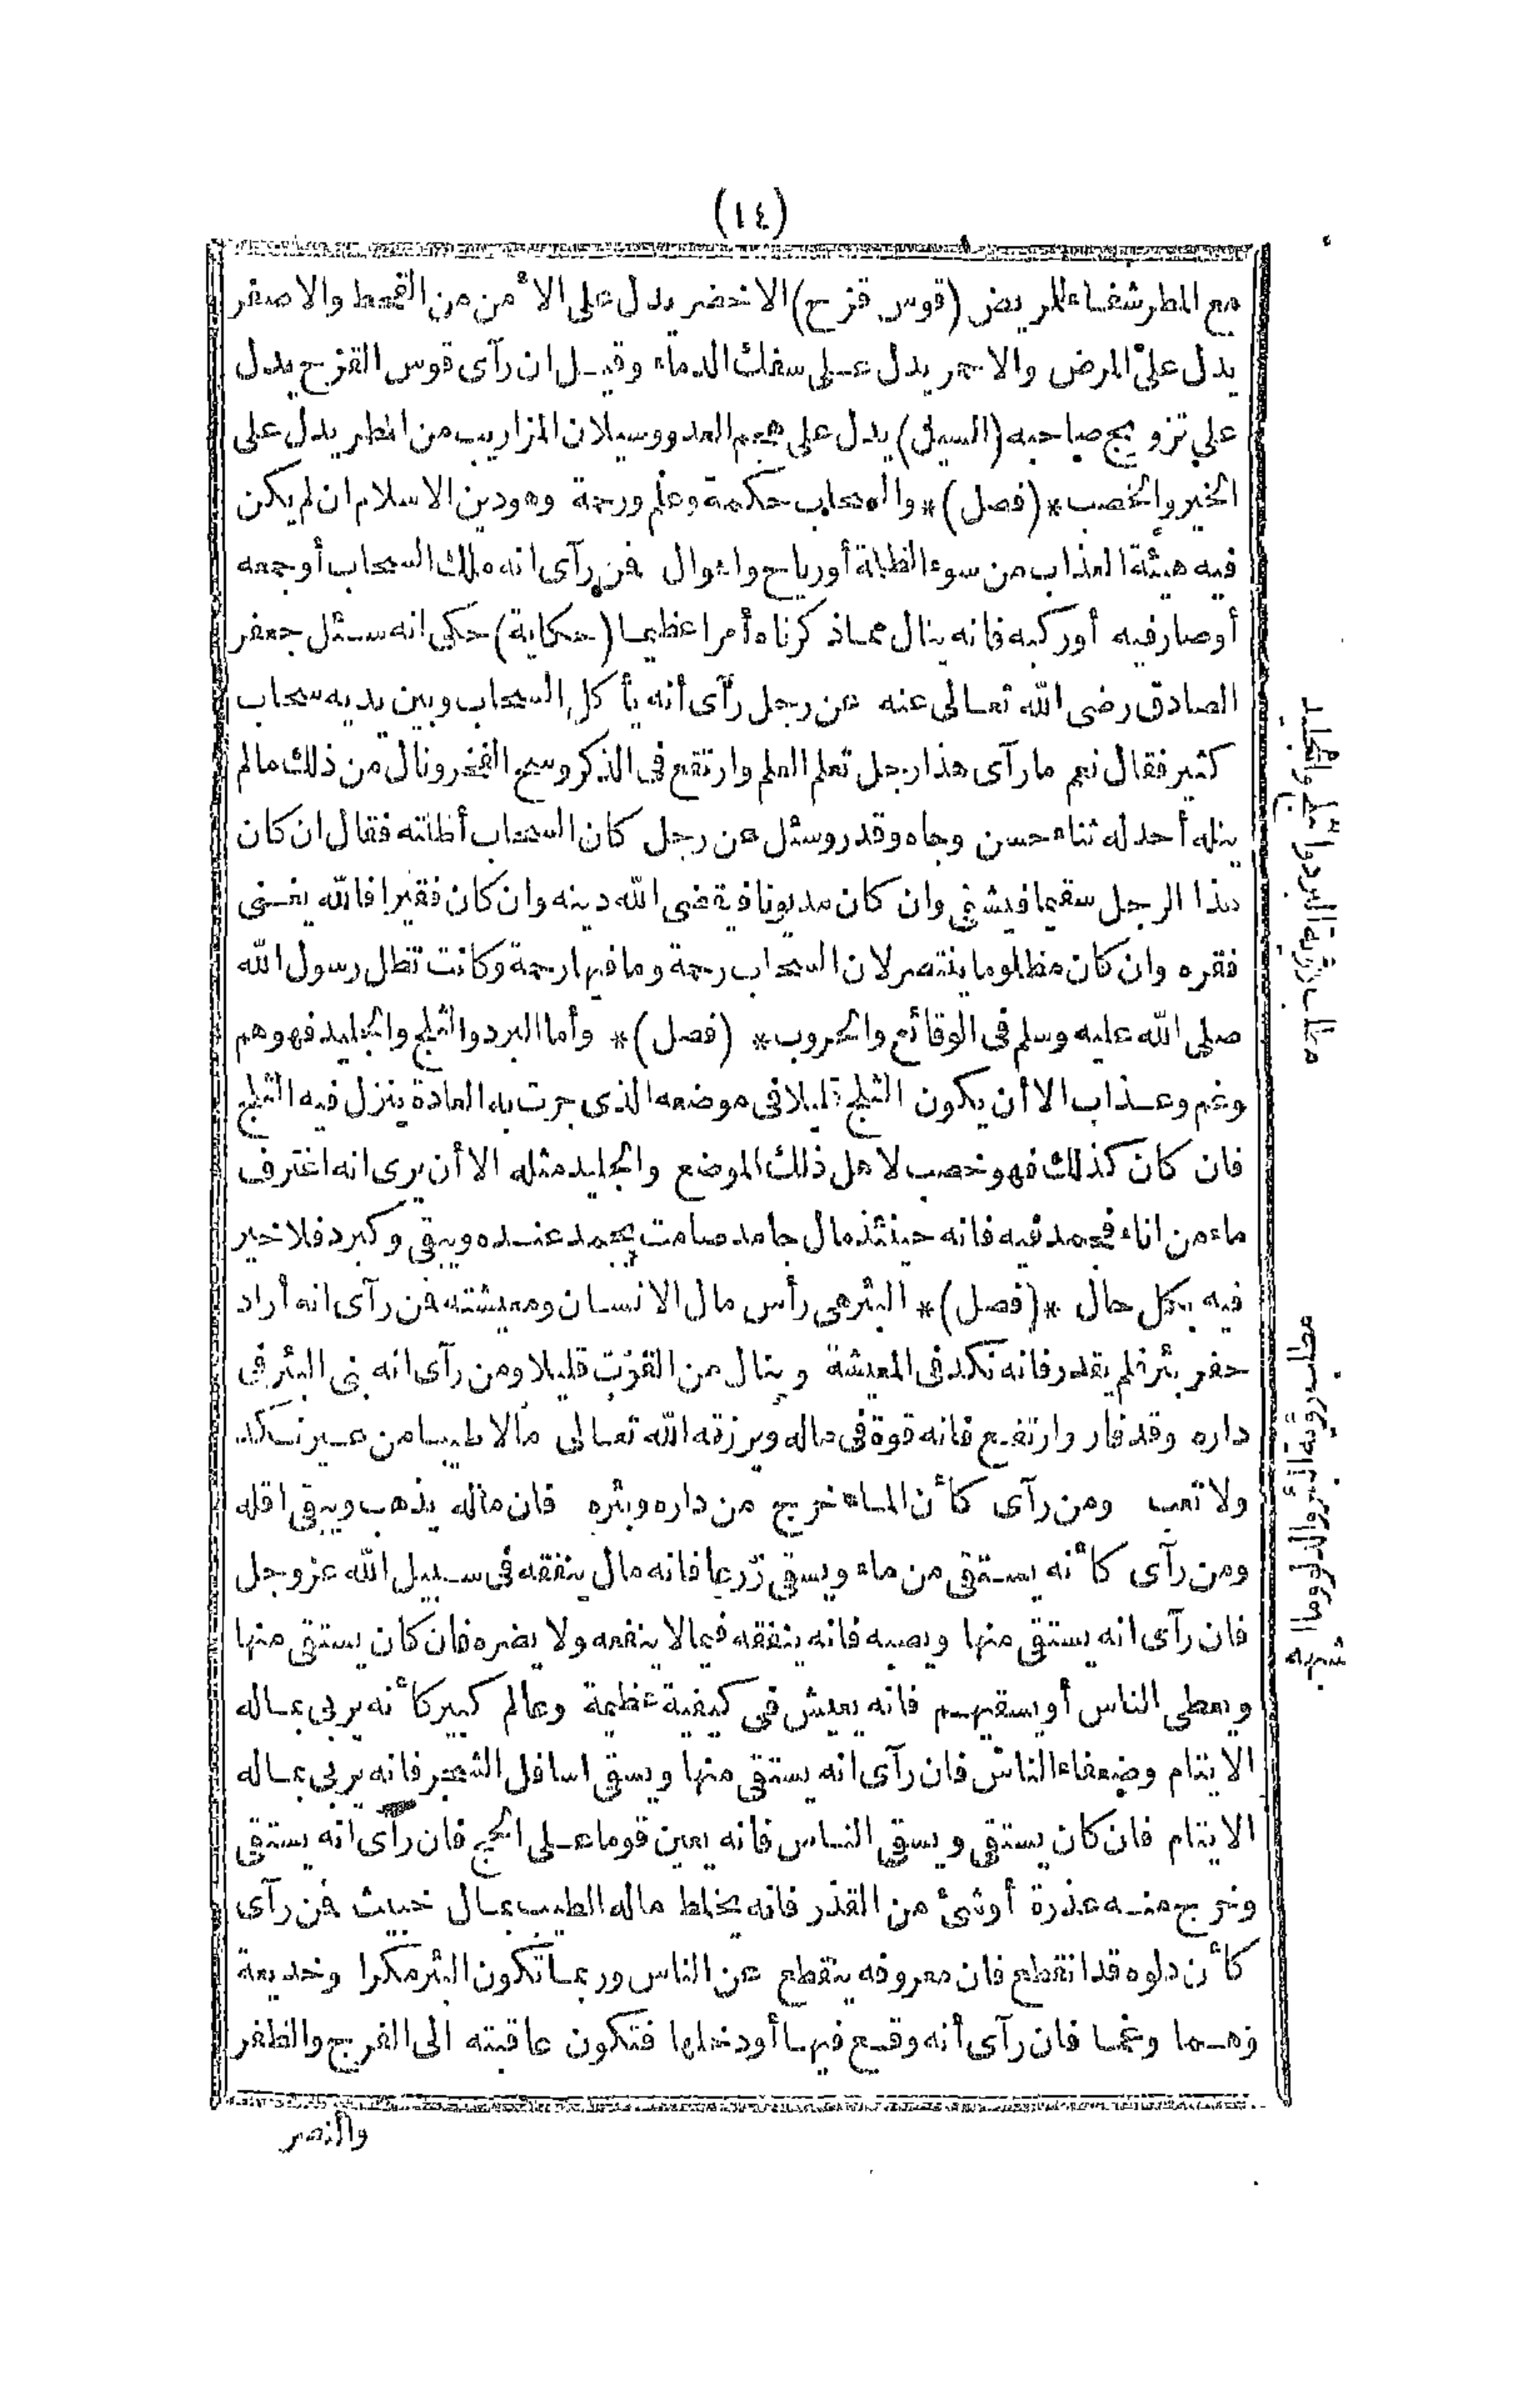 (١٤)
مع المطر شفاء للمريض (قوس قزح) الاخضر يدل على الأمن من القحط والاصفر
يدل على المرض والاحمر يدل على سفك الدماء وقيل ان رآى قوس القزح يدل
على تزويج صاحبه (السيل) يدل على هجم العدو وسيلان المزاريب من المطر يدل على
الخير والخصب *(فصل)* والسحاب حكمة وعلم ورحمة وهو دين الاسلام ان لم يكن
فيه هيئة العذاب من سوء الظلمة أو رياح واهوال فمن رآى انه ملك السحاب أو جمعه
أو صار فيه أو ركبه فانه ينال مما ذكرناه أمرا عظيما (حكاية) حكى انه سئل جعفر
الصادق رضى الله تعالى عنه عن رجل رآى أنه يأكل السحاب وبين يديه سحاب
كثير فقال نعم ما رآى هذا رجل تعلم العلم وارتفع فى الذكر وسمع الفخر ونال من ذلك ما لم
ينله أحد له ثناء حسن وجاه وقدر وسئل عن رجل كان السحاب أظلته فقال ان كان
هذا الرجل سقيما فيشفى وان كان مديونا فيقضى الله دينه وان كان فقيرا فالله يغنى
فقره وان كان مظلوما ينتصر لان السحاب رحمة وما فيها رحمة وكانت تظل رسول الله
صلى الله عليه وسلم فى الوقائع والحروب * (فصل)* وأما البرد والثلج والجليد فهو هم
وغم وعذاب الا أن يكون الثلج قليلا فى موضعه الذى جرت به العادة ينزل فيه الثلج
فان كان كذلك فهو خصب لاهل ذلك الموضع والجليد مثله الا أن يرى انه اغترف
ماء من اناء فجمد فيه فانه حينئذ مال جامد صامت يجمد عنده ويبقى وكبرد فلا خير
فيه بكل حال *(فصل)* البئر هى رأس مال الانسان ومعيشته فمن رآى انه أراد
حفر بئر فلم يقدر فانه نكد فى المعيشة وينال من القوت قليلا ومن رآى انه بنى البئر فى
داره وقد فار وارتفع فانه قوة فى ماله ويرزقه الله تعالى مالا طيبا من غير نكد
ولا تعب ومن رآى كأن الماء خرج من داره وبئره فان ماله يذهب ويبقى اقله
ومن رآى كأنه يستقى من ماء ويسقى زرعا فانه مال ينفقه فى سبيل الله عز وجل
فان رآى انه يستقى منها ويصبه فانه ينفقه فيما لا ينفعه ولا يضره فان كان يستقى منها
ويعطى الناس أو يسقيهم فانه يعيش فى كيفية عظيمة وعالم كبير كأنه يربى بماله
الايتام وضعفاء الناس فان رآى انه يستقى منها ويسقى اسافل الشجر فانه يربى بماله
الايتام فان كان يستقى ويسقى الناس فانه يعين قوما على الحج فان رآى انه يستقى
وخرج منه عذرة أو شئ من القذر فانه يخلط ماله الطيب بمال خبيث فمن رآى
كأن دلوه قد انقطع فان معروفه ينقطع عن الناس وربما تكون البئر مكرا وخديعة
وهما وغما فان رآى أنه وقع فيها أو دخلها فتكون عاقبته الى الفرج والظفر
والنصر
مطلب رؤية البرد والثلج والجليد
مطلب رؤية البئر والدلو وما اشبهه